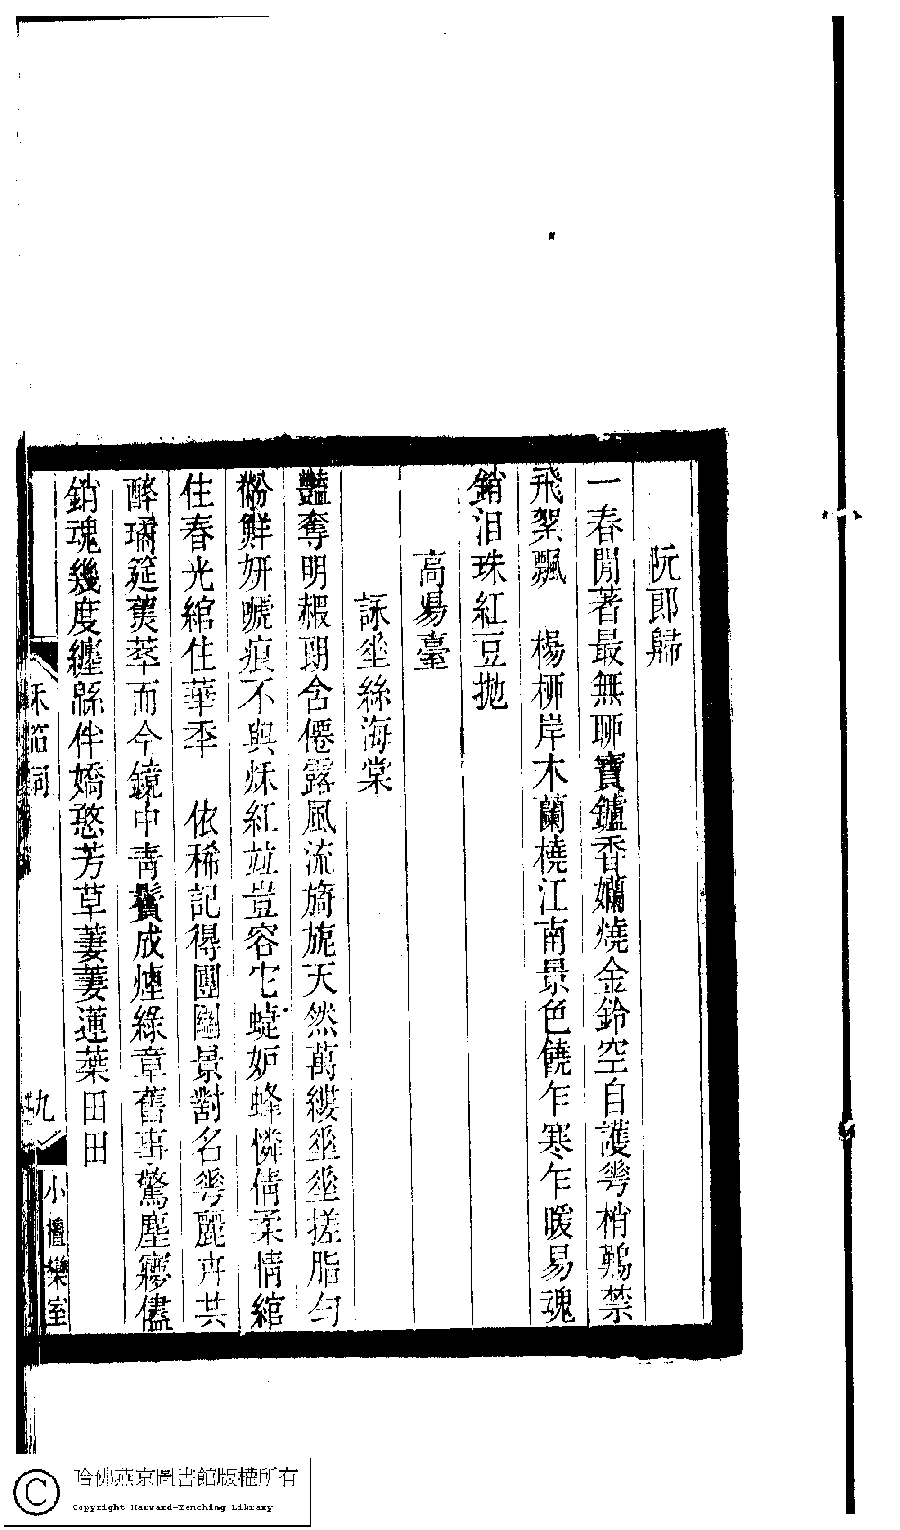 阮郎歸
一春閒著最無聊寶鑪香嬾燒金鈴空自護雩梢難禁
飛絮飄　楊桺岸木蘭橈江南景色饒乍寒乍暖易魂
銷泪珠紅豆拋
高昜臺
詠垂絲海棠
豔奪明霞朝含僊露風流旖旎天然萬縷垂垂搓脂勻
粉鮮妍暁痕不與烁紅竝豈容它蜨妒蜂憐倩柔情綰
住春光綰住華年　依稀記得團圞景對名雩麗卉共
醉璚筵䔇萃而今鏡中青鬢成煙綠章舊事驚塵寢儘
銷魂幾度纏緜伴嬌憨芳草萋萋蓮葉田田
詞
九
小檀欒室
哈佛燕京圖書館版權所有
Copyright Harvard-Yenching Library